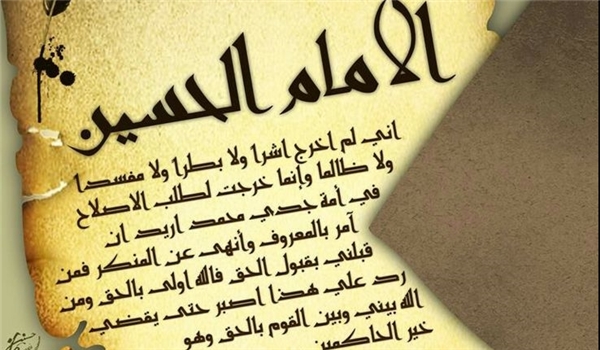 الامام الحسين
اني لم اخرج اشرا ولا بطرا ولا مفسدا
ولا ظالما وإنما خرجت لطلب الاصلاح
في أمة جدي محمد اريد ان
آمر بالمعروف وأنهى عن المنكر فمن
قبلني بقبول الحق فالله اولى بالحق ومن
رد علي هذا اصبر حتى يقضي
الله بيني وبين القوم بالحق وهو
خير الحاكمين